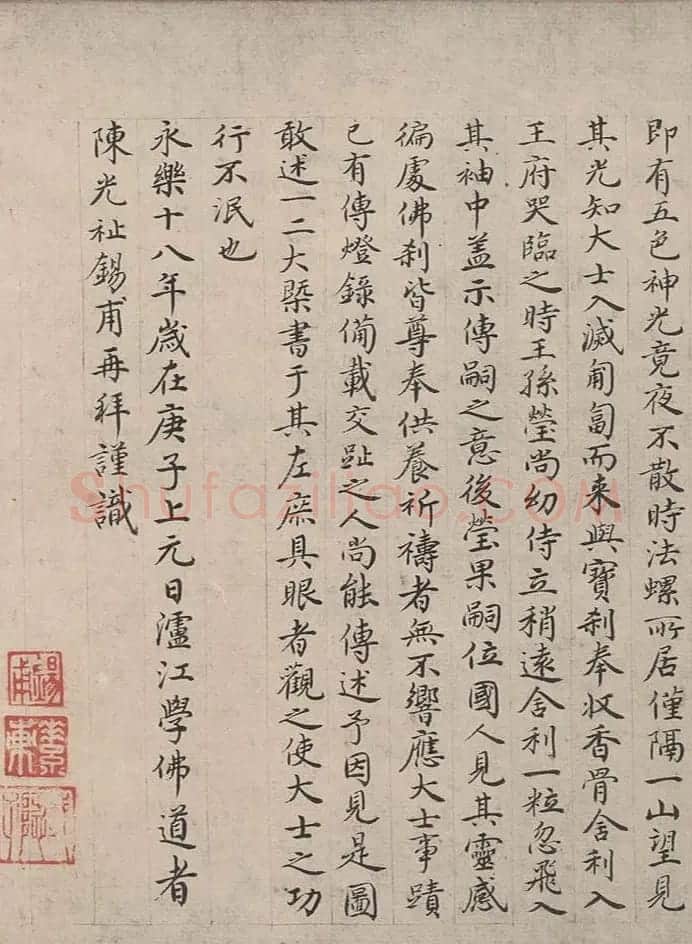 即有五色神光竟夜不散時法螺所居僅隔一山望見
其光知大士入滅匍匐而来與寶刹奉收香骨舍利入
王府哭臨之時王孫瑩尚幼侍立稍遠舍利一粒忽飛入
其袖中盖示傳嗣之意後瑩果嗣位國人見其靈感
徧處佛刹皆尊奉供養祈禱者無不響應大士事蹟
已有傳燈錄備載交趾之人尚能傳述予因見是圖
敢述一二大槩書于其左庶具眼者觀之使大士之功
行不泯也
永樂十八年歲在庚子上元日瀘江學佛道者
陳光祉錫甫再拜謹識
錫甫
Shufaziliao.com